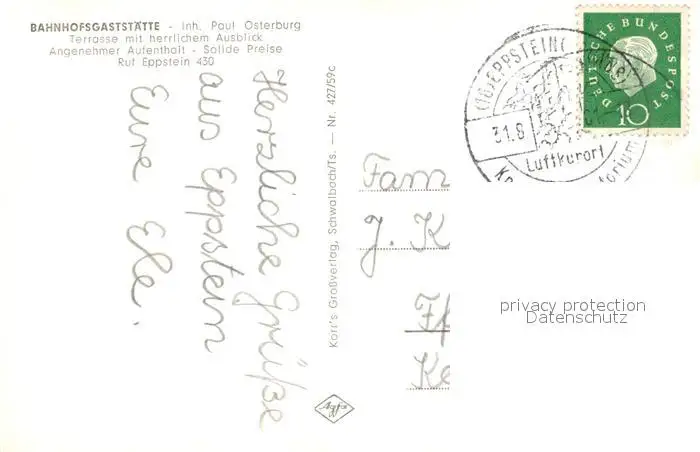 BAHNHOFSGASTSTÄTTE - Inh. Paul Osterburg
Terrasse mit herrlichem Ausblick
Angenehmer Aufenthalt - Solide Preise
Ruf Eppstein 430
Herzliche Grüße
aus Eppstein
Eure Ele.
Korr's Großverlag, Schwalbach/Ts. — Nr. 427/59c
Agfa
(16) EPPSTEIN
31.8
Luftkurort
DEUTSCHE BUNDESPOST
10
Fam
J. K
privacy protection
Datenschutz